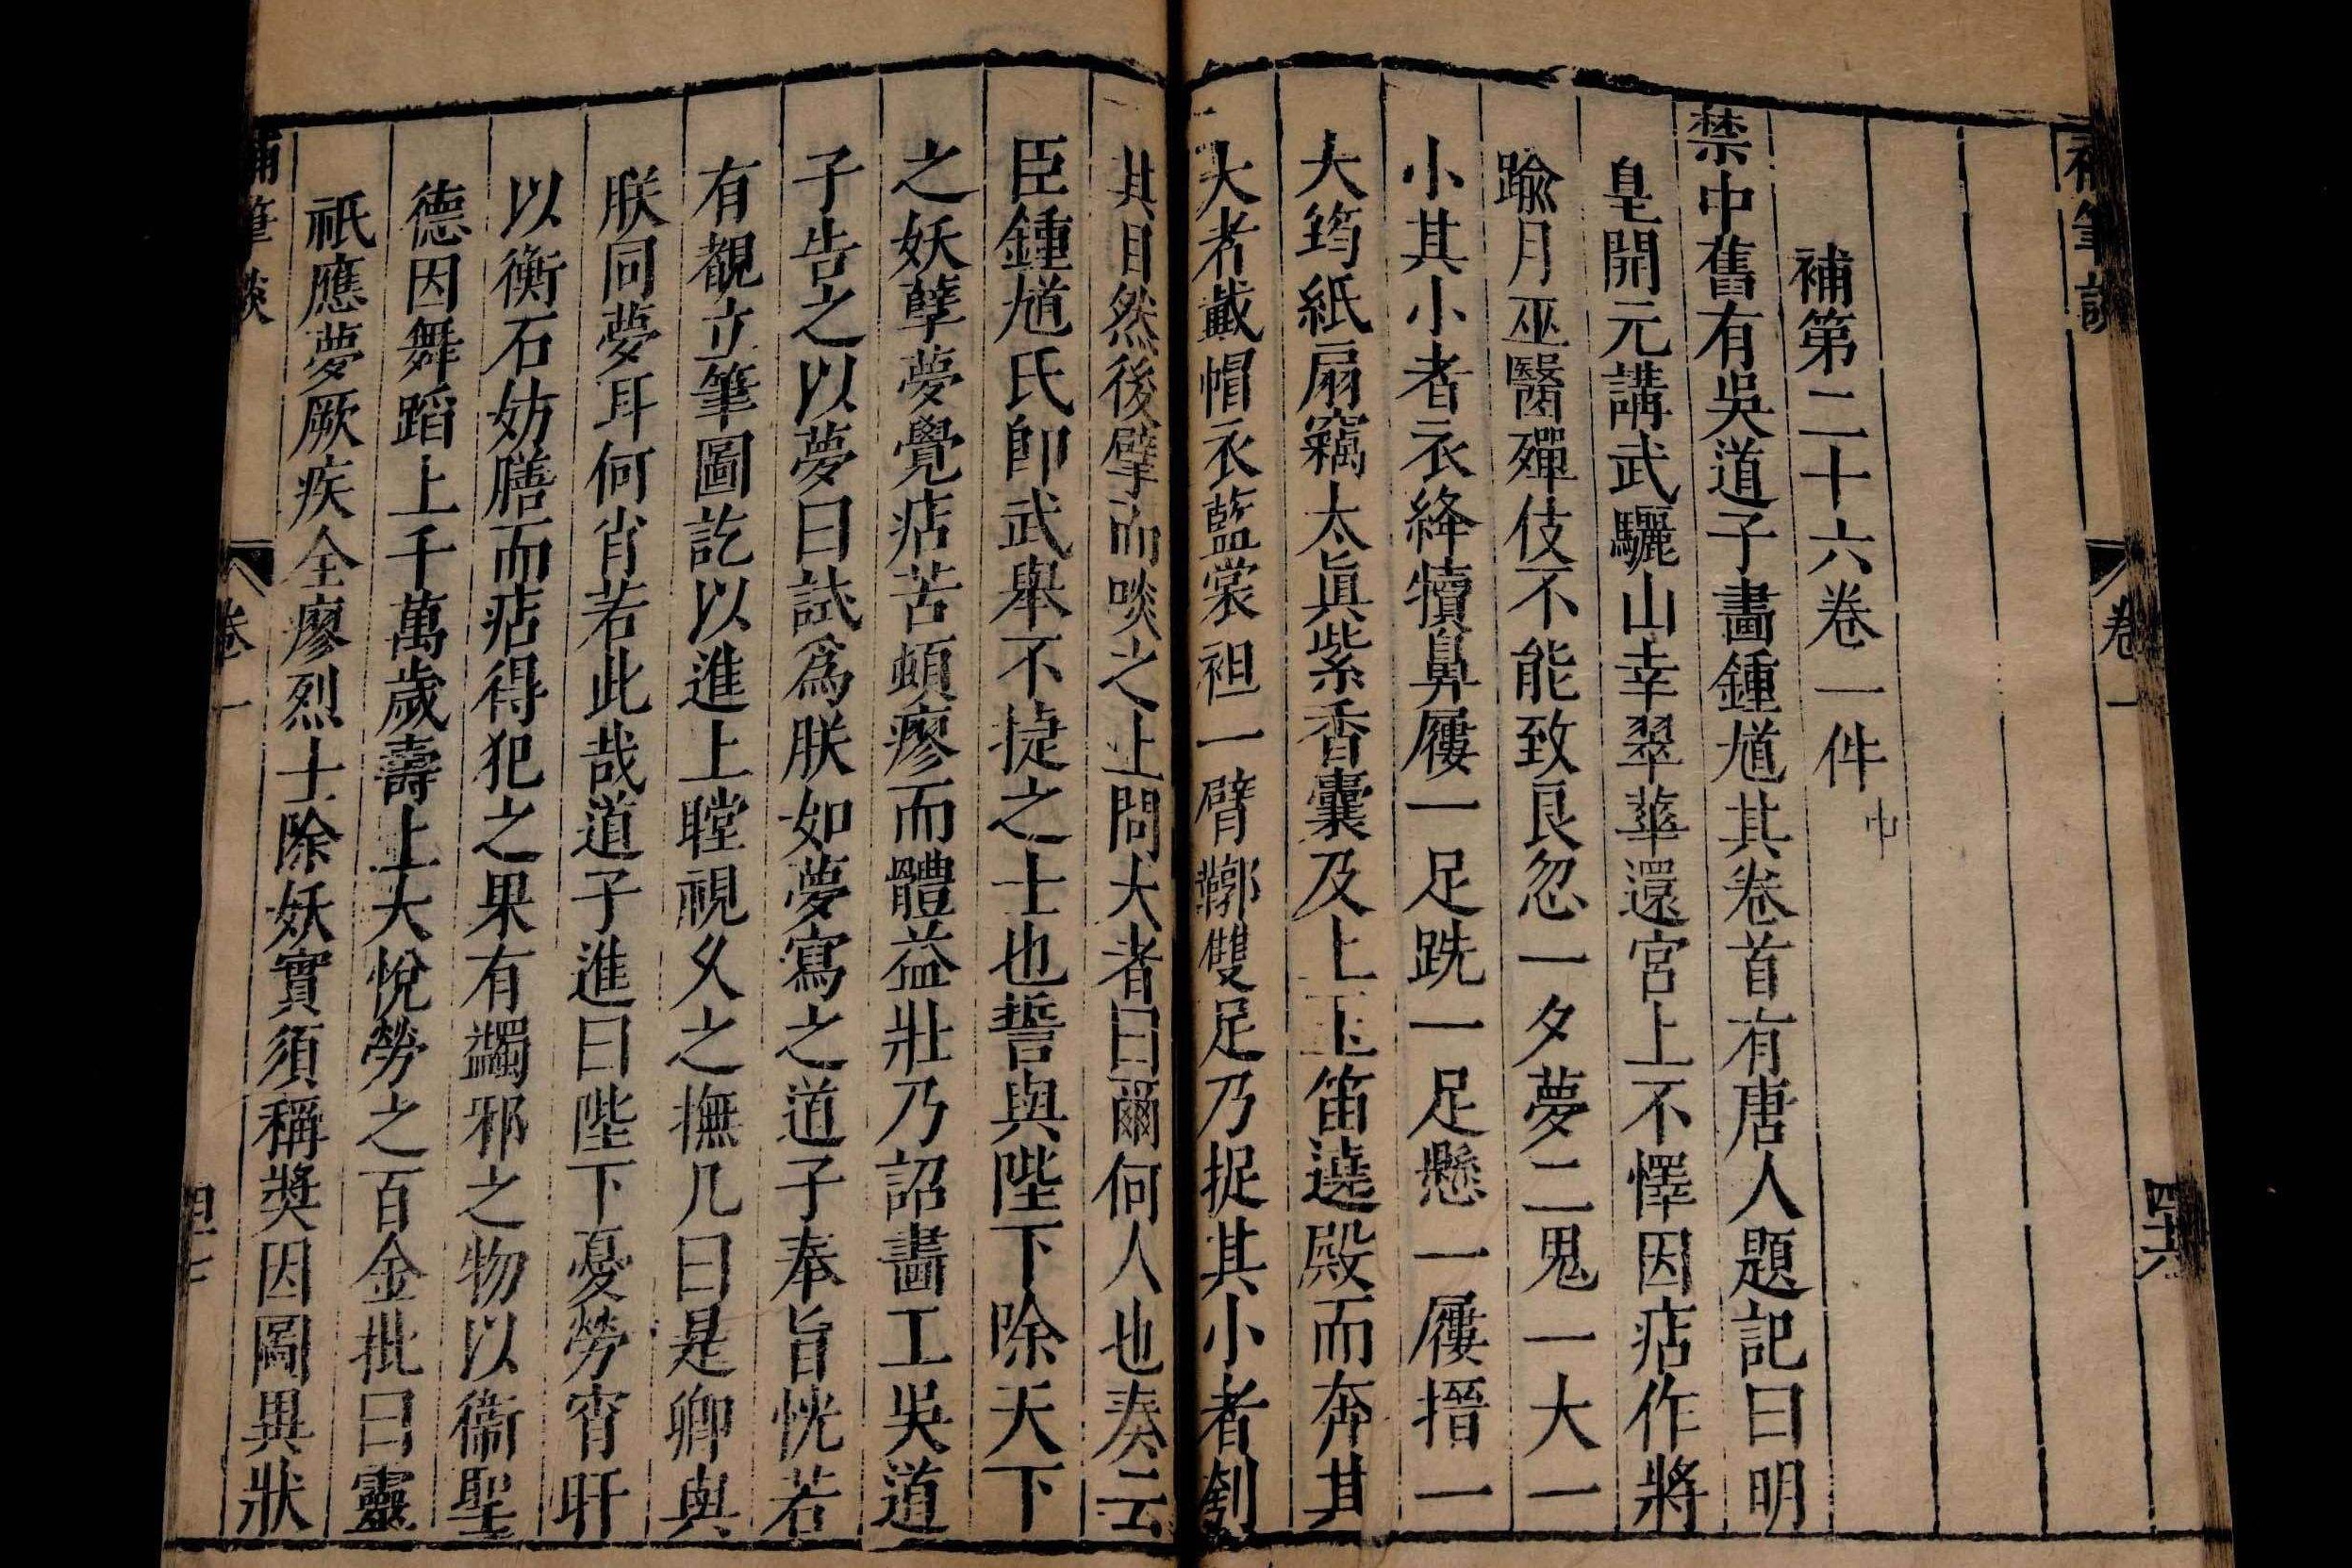 補筆談
卷一
四六
補第二十六卷一件
中
禁中舊有吳道子畫鍾馗其卷首有唐人題記曰明
皇開元講武驪山幸翠華還宮上不懌因痁作將
踰月巫醫殫伎不能致良忽一夕夢二鬼一大一
小其小者衣絳犢鼻屨一足跣一足懸一屨搢一
大筠紙扇竊太真紫香囊及上玉笛遶殿而奔其
大者戴帽衣藍裳袒一臂鞹雙足乃捉其小者刳
其目然後擘而啖之上問大者曰爾何人也奏云
臣鍾馗氏即武舉不捷之士也誓與陛下除天下
之妖孽夢覺痁苦頓瘳而體益壯乃詔畫工吳道
子告之以夢曰試爲朕如夢寫之道子奉旨恍若
有覩立筆圖訖以進上瞠視久之撫几曰是卿與
朕同夢耳何肖若此哉道子進曰陛下憂勞宵旰
以衡石妨膳而痁得犯之果有蠲邪之物以衞聖
德因舞蹈上千萬歲壽上大悅勞之百金批曰靈
祇應夢厥疾全瘳烈士除妖實須稱獎因圖異狀
補筆談
卷一
四七